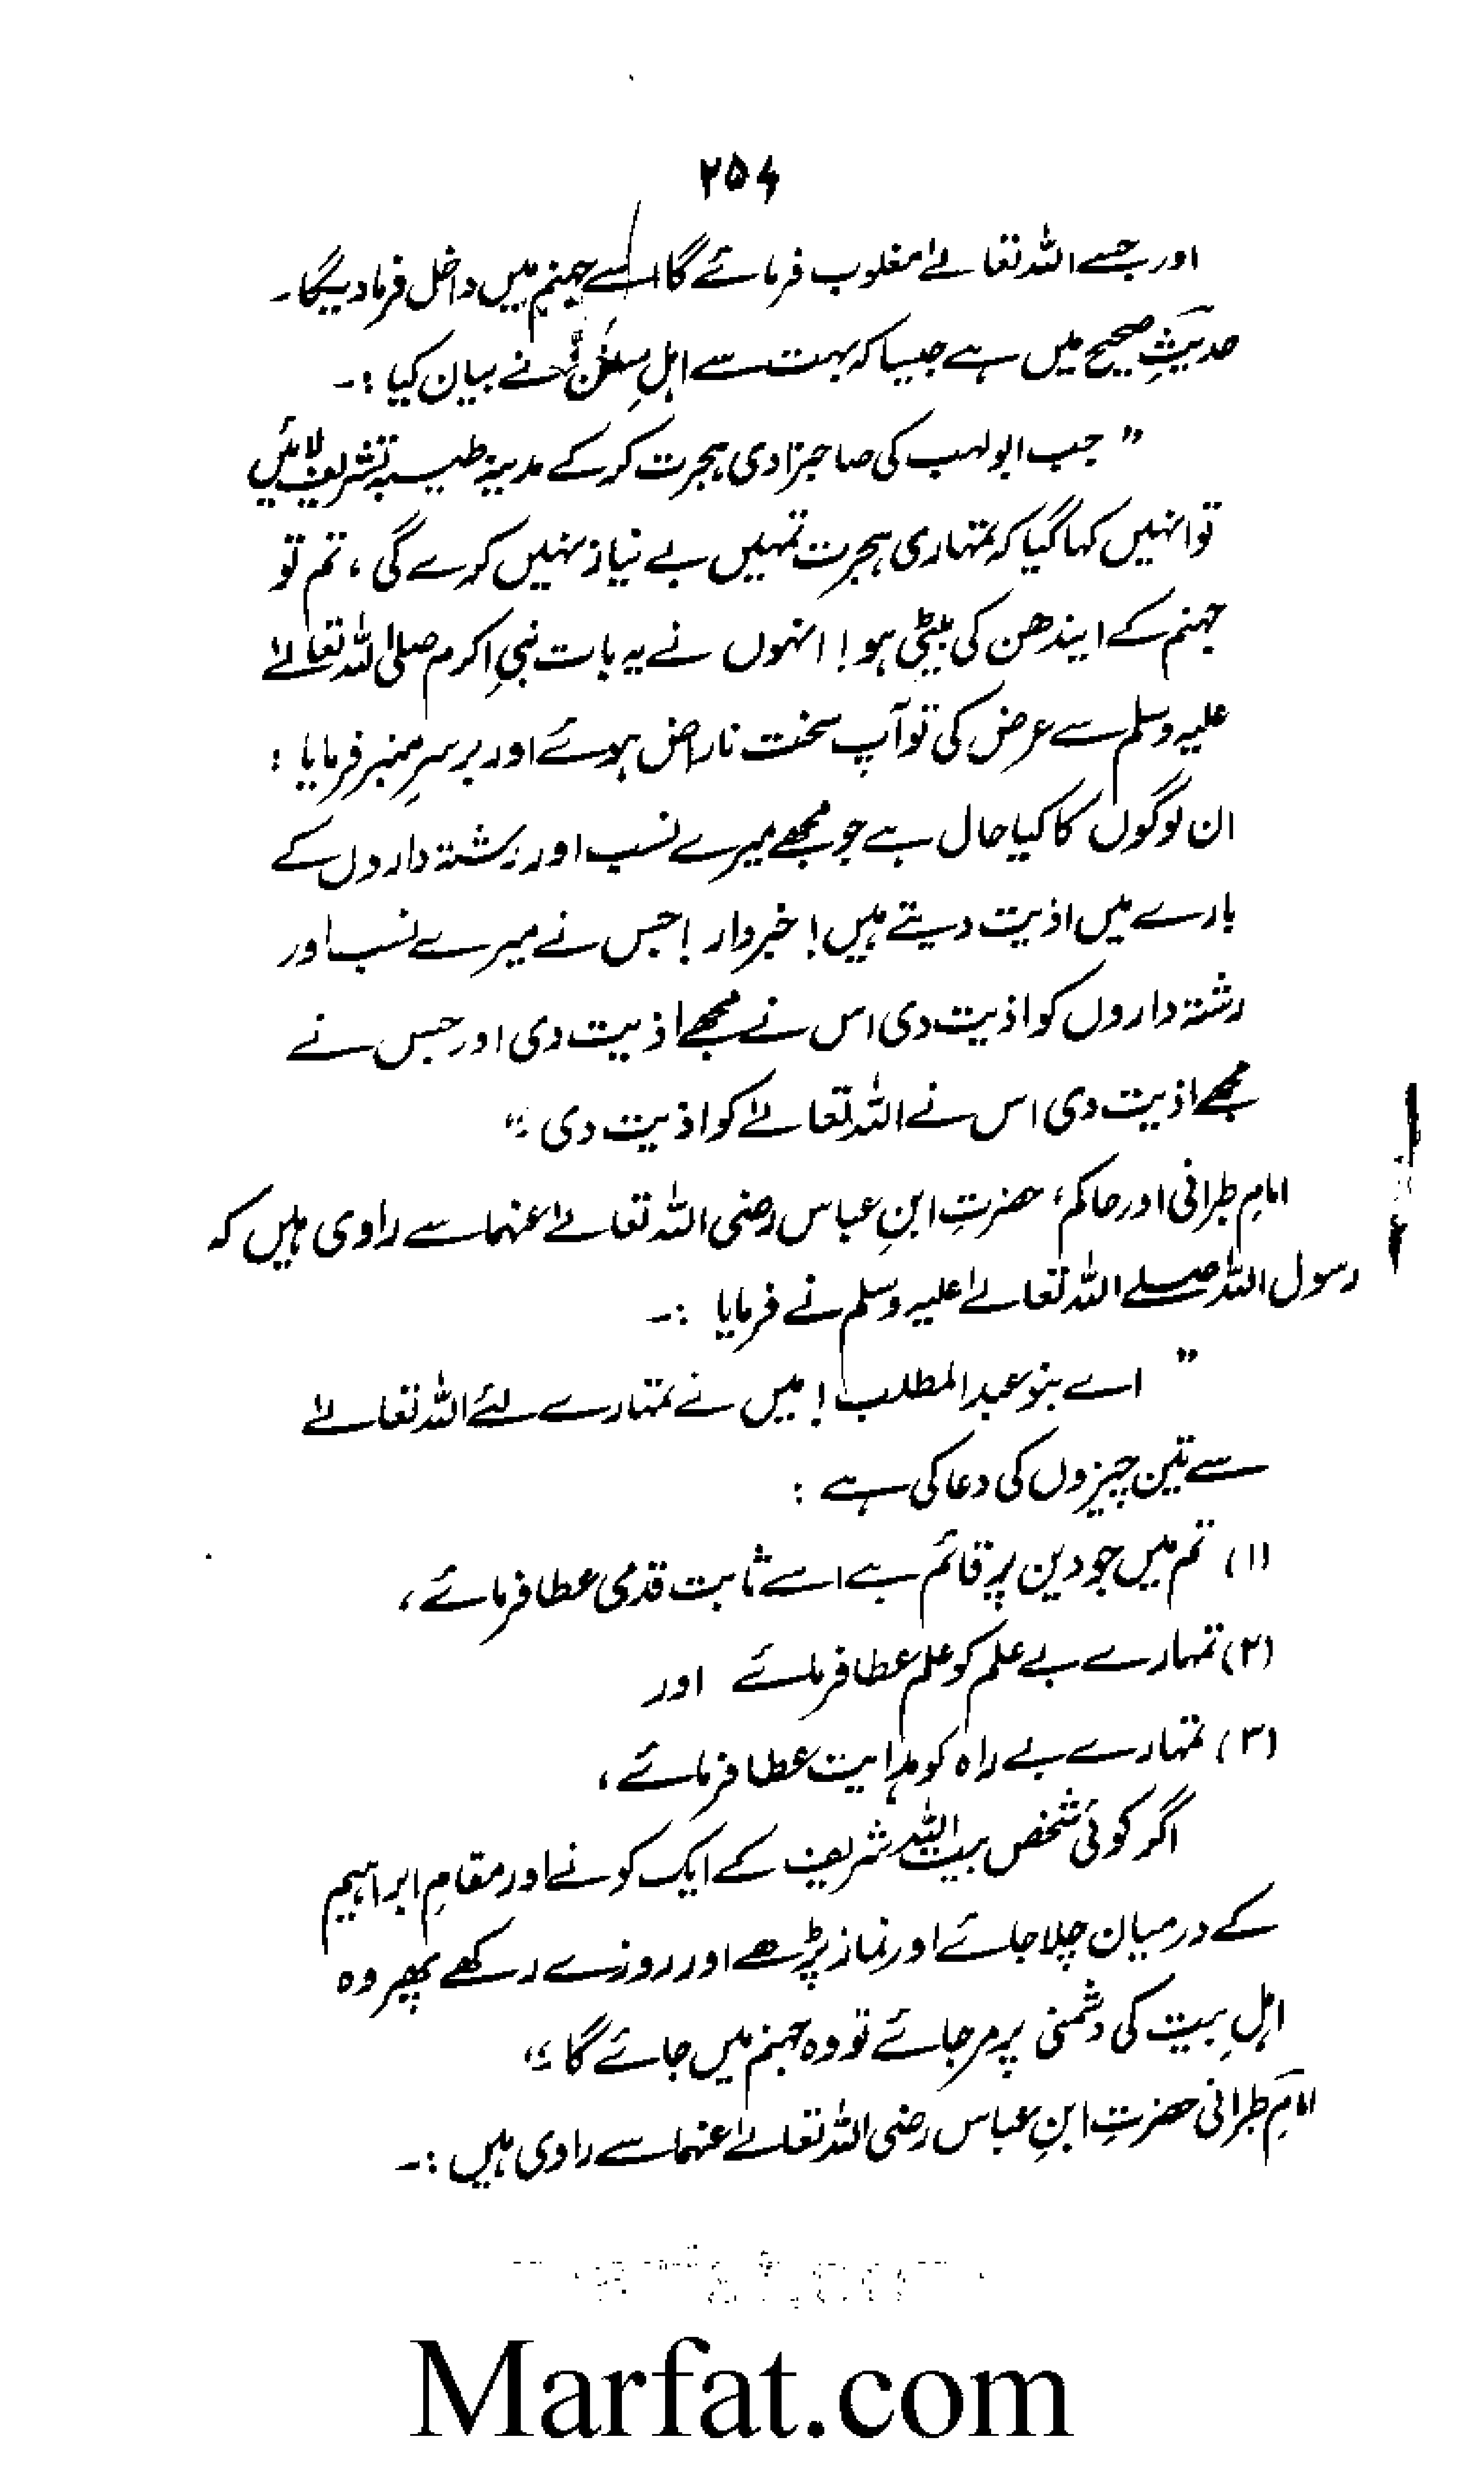 ۲۵۶
اور جسے اللہ تعالےٰ مغلوب فرمائے گا اسے جہنم میں داخل فرما دیگا۔
حدیثِ صحیح میں ہے جیسا کہ بہت سے اہلِ سنن نے بیان کیا :۔
” جب ابولہب کی صاحبزادی ہجرت کر کے مدینہ طیبہ تشریف لائیں
تو انہیں کہا گیا کہ تمہاری ہجرت تمہیں بے نیاز نہیں کرے گی ، تم تو
جہنم کے ایندھن کی بیٹی ہو! انہوں نے یہ بات نبیِ اکرم صلی اللہ تعالےٰ
علیہ وسلم سے عرض کی تو آپ سخت ناراض ہوئے اور برسرِ منبر فرمایا :
ان لوگوں کا کیا حال ہے جو مجھے میرے نسب اور رشتہ داروں کے
بارے میں اذیت دیتے ہیں! خبردار! جس نے میرے نسب اور
رشتہ داروں کو اذیت دی اس نے مجھے اذیت دی اور جس نے
مجھے اذیت دی اس نے اللہ تعالےٰ کو اذیت دی ؛“
امامِ طبرانی اور حاکم ، حضرتِ ابنِ عباس رضی اللہ تعالےٰ عنہما سے راوی ہیں کہ
رسول اللہ صلے اللہ تعالےٰ علیہ وسلم نے فرمایا :۔
” اے بنو عبدالمطلب! میں نے تمہارے لئے اللہ تعالےٰ
سے تین چیزوں کی دعا کی ہے :
(۱) تم میں جو دین پر قائم ہے اسے ثابت قدمی عطا فرمائے ،
(۲) تمہارے بے علم کو علم عطا فرمائے اور
(۳) تمہارے بے راہ کو ہدایت عطا فرمائے ،
اگر کوئی شخص بیت اللہ شریف کے ایک کونے اور مقامِ ابراہیم
کے درمیان چلا جائے اور نماز پڑھے اور روزے رکھے پھر وہ
اہلِ بیت کی دشمنی پر مر جائے تو وہ جہنم میں جائے گا ؛“
امامِ طبرانی حضرتِ ابنِ عباس رضی اللہ تعالےٰ عنہما سے راوی ہیں :۔
Marfat.com